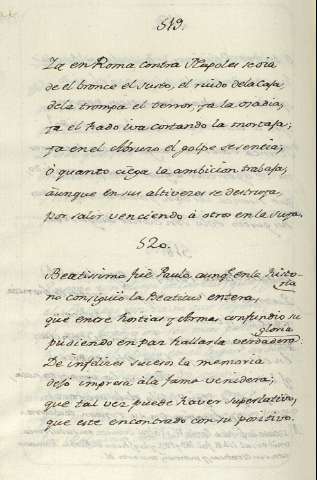 519.
Ya en Roma contra Napoles se oia
de el bronce el susto, el ruido dela Caja,
dela trompa el terror, ya la osadia,
ya el hado iva cortando la mortaja;
ya en el Abruzo el golpe se sentia;
ò quanto ciega la ambicion trabaja,
àunque en sus altivezes se destruya,
por salir venciendo à otro en la suya.
520.
Beatissimo fuè Paulo, aunq.e en la histo-
ria
no consiguiò la Beatitud entera,
què entre hostias y Armas confundio su
gloria
pudiendo en paz hallarla verdadera.
De infelizes sucesos la memoria
dejò impresa àla fama venidera;
què tal vez puede haver superlativo,
que este encontrado con su positivo.